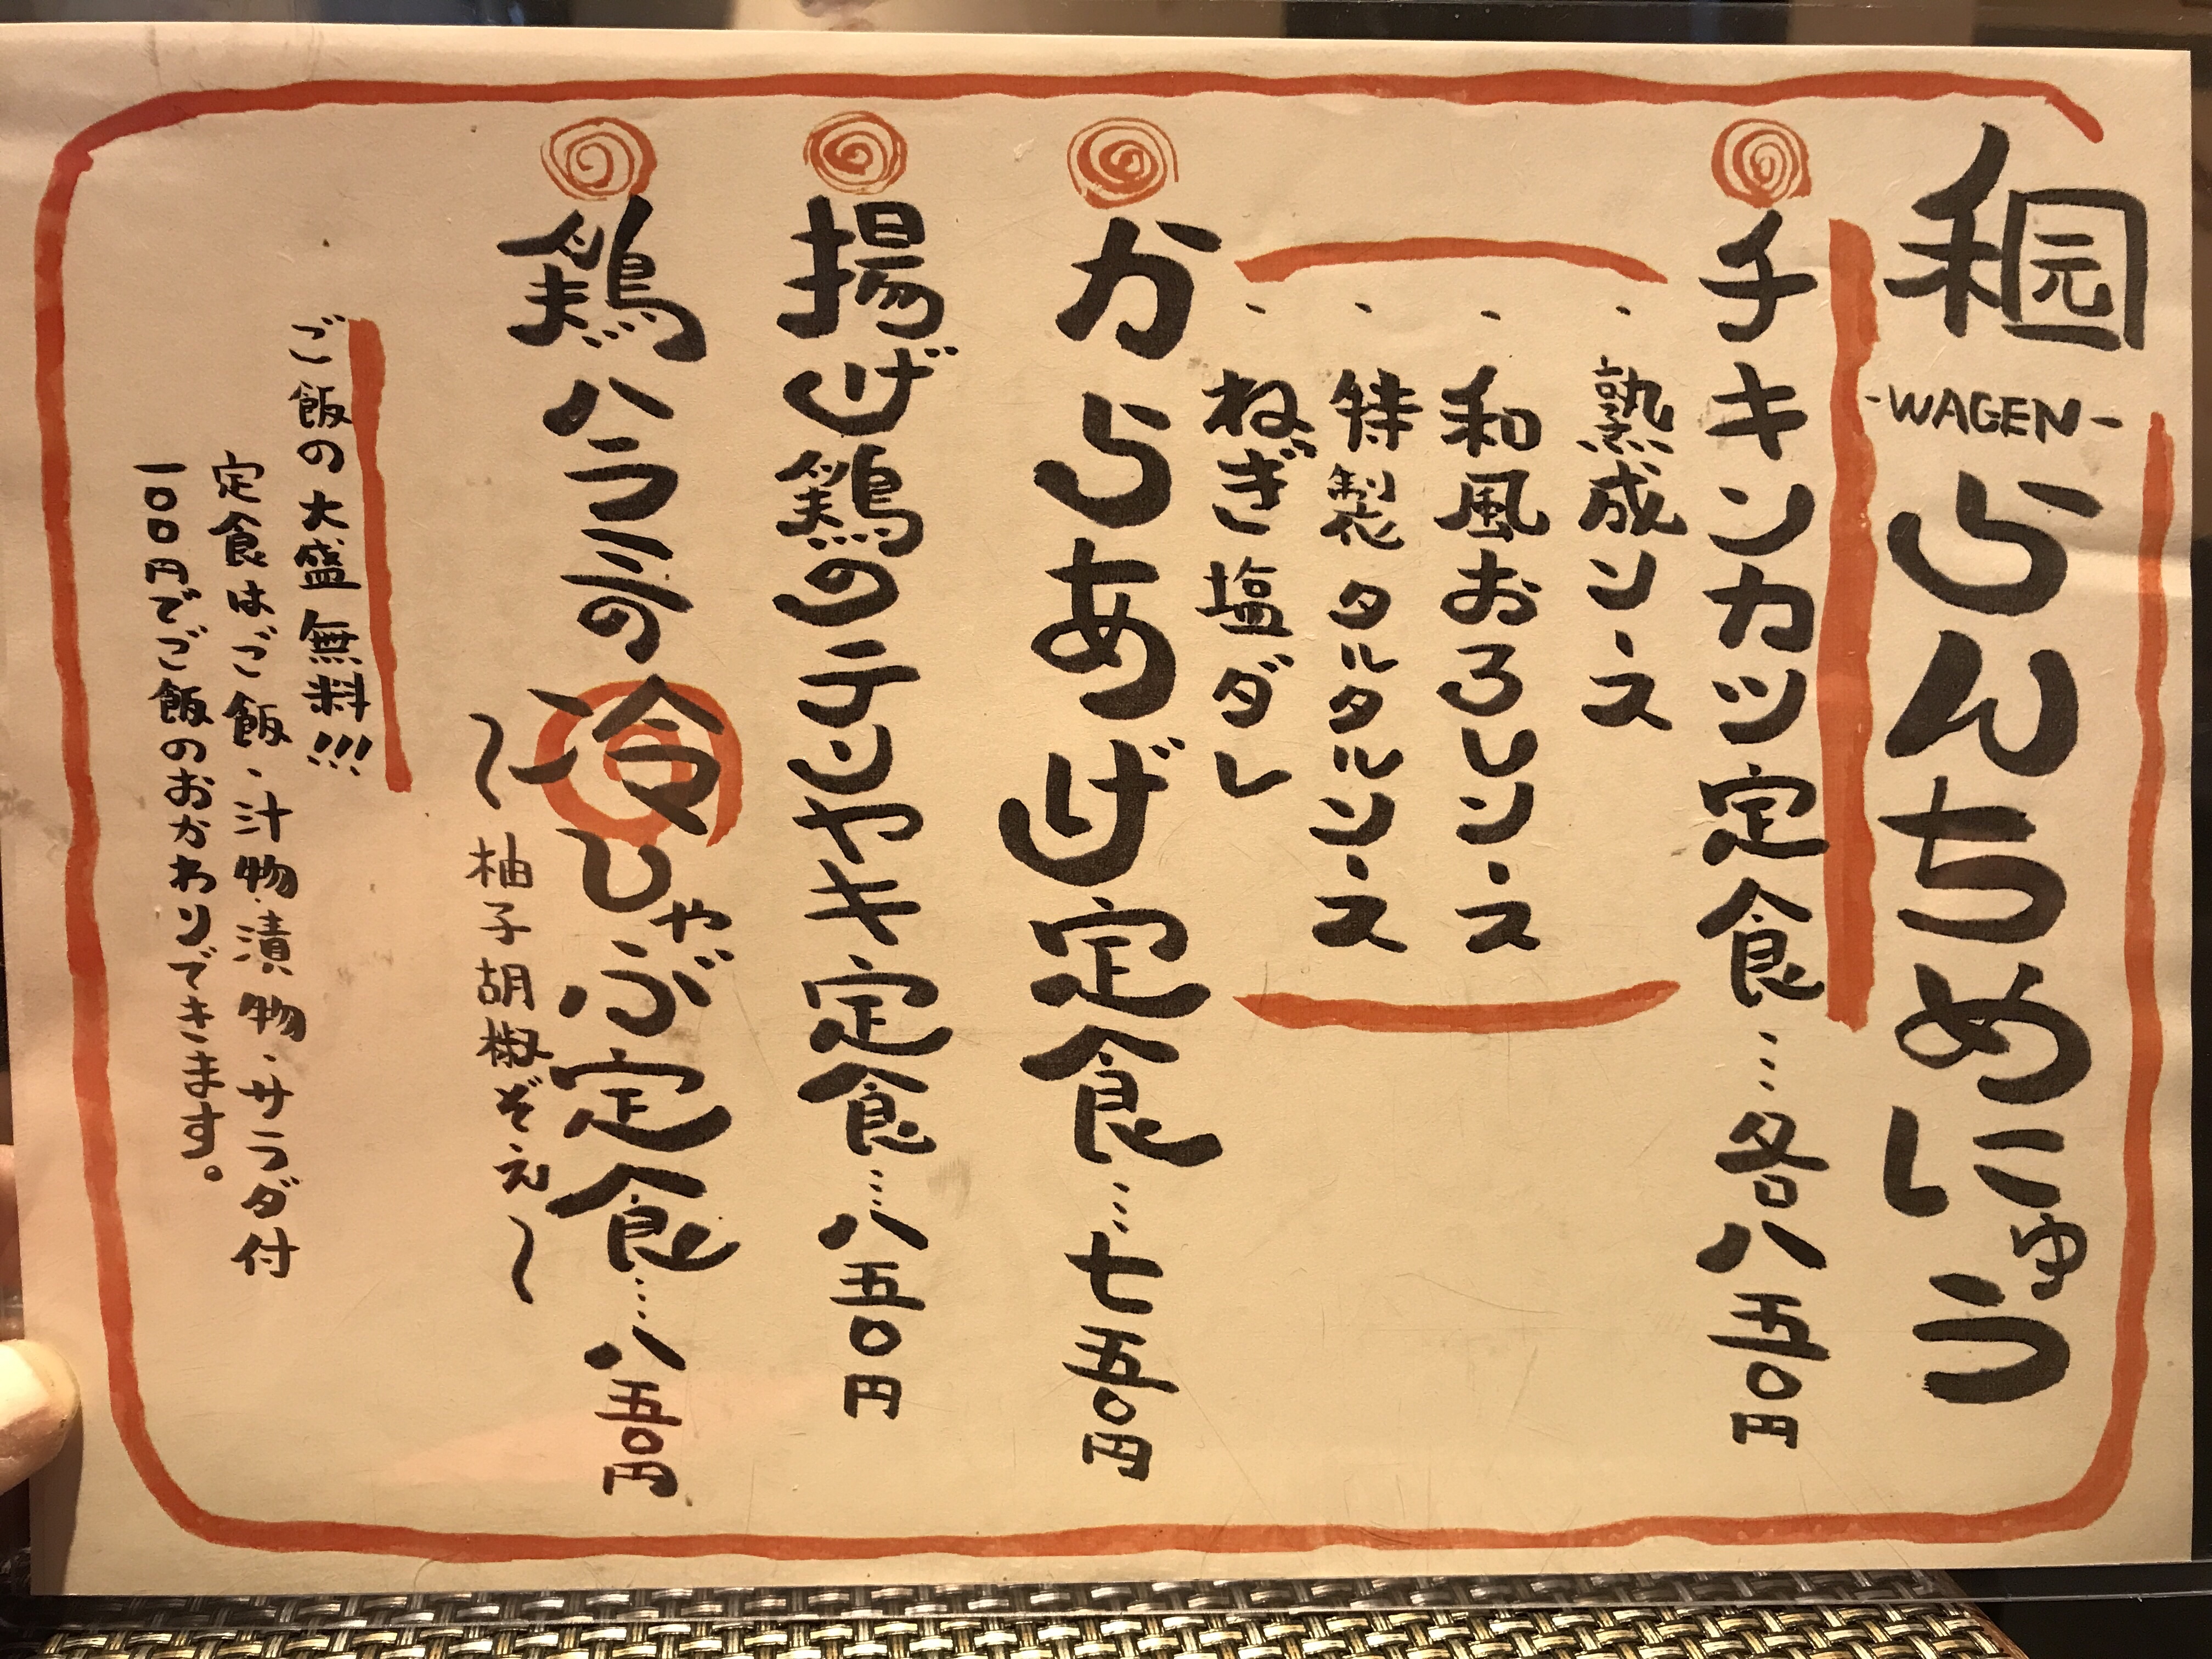 -WAGEN-
らんちめにゅう
チキンカツ定食…各八五〇円
・熟成ソース
・和風おろしソース
・特製タルタルソース
・ねぎ塩ダレ
からあげ定食…七五〇円
揚げ鶏のテリヤキ定食…八五〇円
鶏ハラミの冷しゃぶ定食…八五〇円
～柚子胡椒ぞえ～
ご飯の大盛無料!!!
定食はご飯・汁物・漬物・サラダ付
一〇〇円でご飯のおかわりできます。